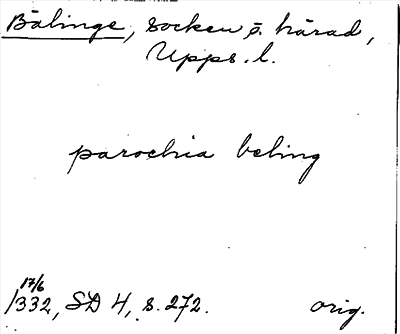 Bälinge, socken o. härad,
Upps. l.
parochia beling
17/6
1332, SD 4, s. 272. orig.